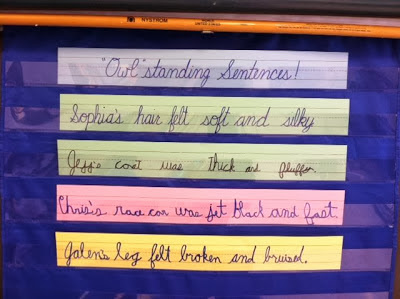 NYSTROM
"Owl"standing Sentences!
Sophia's hair felt soft and silky
coat was thick and
Chris's race car was jet black and fast.
Jalen's leg felt broken and bruised.